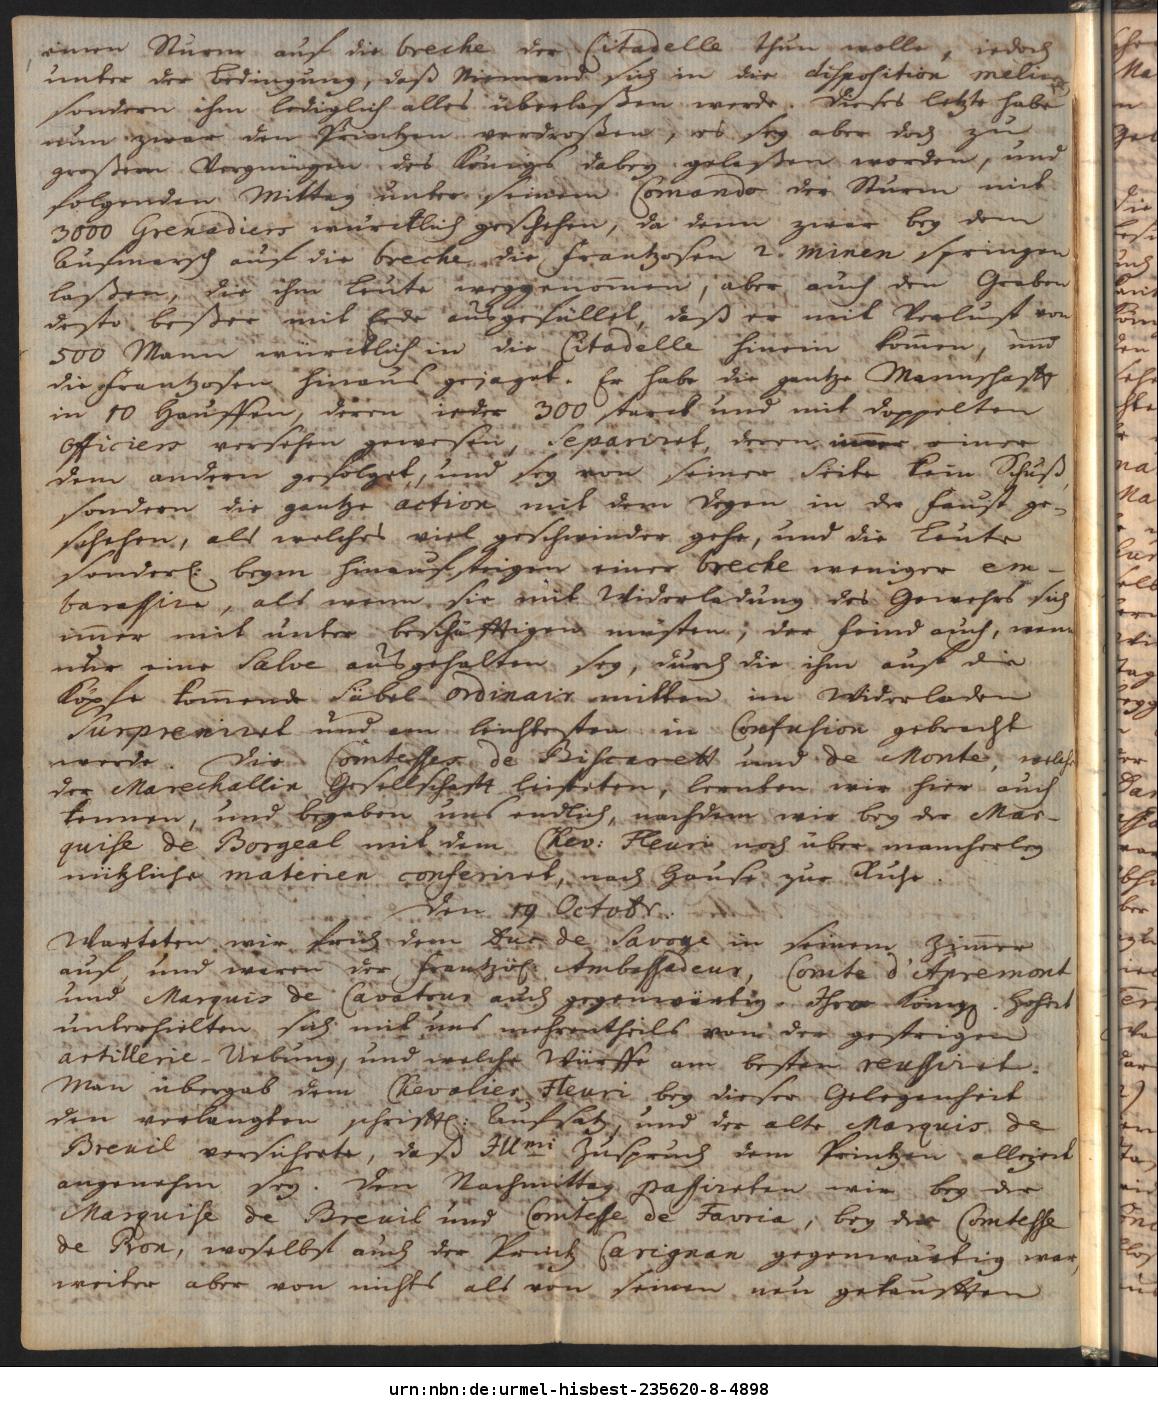 einen Sturm auf die breche der Citadelle thun wolle, iedoch
unter der Bedingung, daß Niemand sich in die disposition melire
sondern ihm lediglich alles überlaßen werde. Dieses letzte habe
nun zwar den Printzen verdroßen, es sey aber doch zu
großem Vergnügen des Königs dabey gelaßen worden, und
folgenden Mittag unter seinem Comando der Sturm mit
3000 Grenadiers würcklich geschehen, da denn zwar bey dem
Aufmarsch auf die breche die Frantzosen 2. minen springen
laßen, die ihm Leute weggenommen, aber auch den Graben
desto beßer mit Erde ausgefüllet, daß er mit Verlust von
500 Mann würcklich in die Citadelle hinein kommen, und
die Frantzosen hinaus gejaget. Er habe die gantze Mannschafft
in 10 Hauffen, deren ieder 300 starck und mit doppelten
Officiers versehen gewesen, separiret, deren immer einer
dem andern gefolget, und sey von seiner Seite kein Schuß,
sondern die gantze action mit dem Degen in der Faust ge-
schehen, als welches viel geschwinder gehe, und die Leute
sonderl. beym hinaufsteigen einer breche weniger em-
barassire, als wenn sie mit Widerladung des Gewehrs sich
immer mit unter beschäfftigen müsten; der Feind auch, wenn
nur eine Salve ausgehalten sey, durch die ihm auf die
Köpfe kommende Säbel ordinair mitten im Widerladen
surpreniret und am leichtesten in Confusion gebracht
werde. Die Comtesses de Biscarett und de Monte, welche
der Marechallin Gesellschafft leisteten, lernten wir hier auch
kennen, und begaben uns endlich, nachdem wir bey der Mar-
quise de Borgeal mit dem Chev: Fleuri noch über mancherley
nützliche materien conferiret, nach Hause zur Ruhe.
Den 19 Octobr.
Warteten wir früh dem Duc de Savoye in seinem Zimmer
auf, und waren der Frantzös. Ambassadeur, Comte d'Apremont
und Marquis de Cavatour auch gegenwärtig. Ihre Königl. Hoheit
unterhielten sich mit uns mehrentheils von der gestrigen
artillerie-Uebung, und welche Würffe am besten reussiret.
Man übergab dem Chevalier Fleuri bey dieser Gelegenheit
den verlangten schrifftl: Aufsatz, und der alte Marquis de
Breuil versicherte, daß Illmi Zuspruch dem Printzen allezeit
angenehm sey. Den Nachmittag passireten wir bey der
Marquise de Breuil und Comtesse de Favria, bey der Comtesse
de Pron, woselbst auch der Printz Carignan gegenwärtig war,
weiter aber von nichts als von seinen neu gekaufften
urn:nbn:de:urmel-hisbest-235620-8-4898